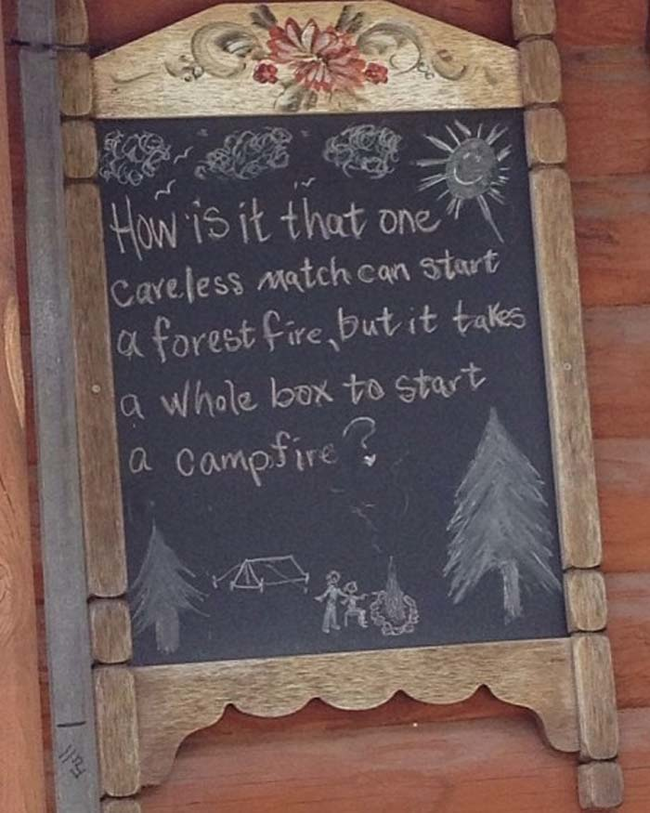 How is it that one
careless match can start
a forest fire, but it takes
a whole box to start
a campfire?
Fall